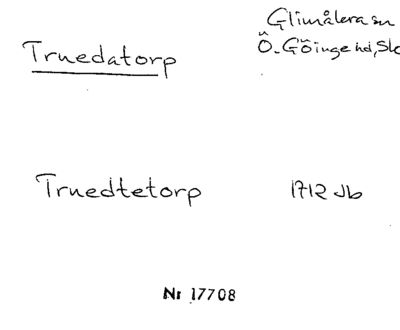 Glimåkra sn
Truedatorp
Ö. Göinge hd, Sk
Truedtetorp 1712 Jb
Nr 17708